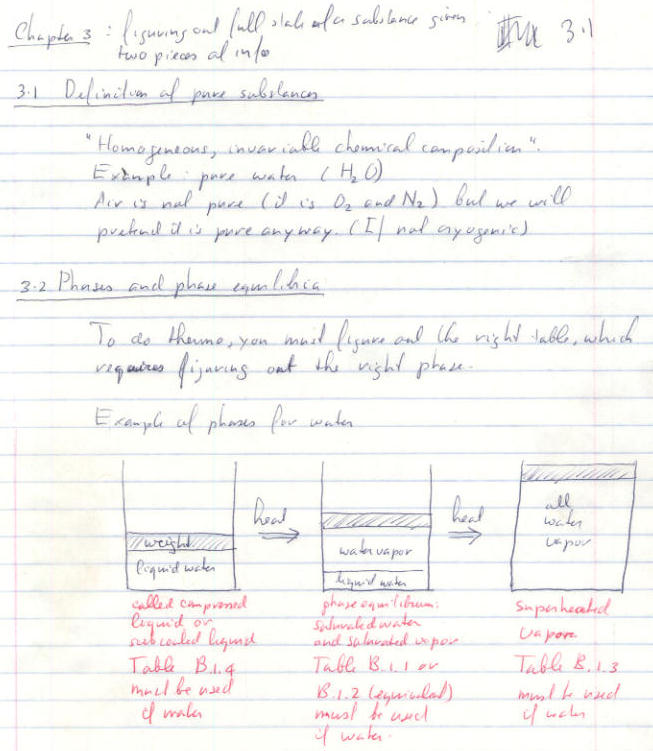 Chapter 3 : figuring out full state of a substance given
two pieces of info
3.1
3.1 Definition of pure substances
"Homogeneous, invariable chemical composition".
Example: pure water (H₂O)
Air is not pure (it is O₂ and N₂) but we will
pretend it is pure anyway. (If not cryogenic)
3.2 Phases and phase equilibria
To do thermo, you must figure out the right table, which
requires figuring out the right phase.
Example of phases for water
weight
liquid water
heat
water vapor
liquid water
heat
all
water
vapor
called compressed
liquid or
subcooled liquid
Table B.1.4
must be used
if water
phase equilibrium:
saturated water
and saturated vapor
Table B.1.1 or
B.1.2 (equivalent)
must be used
if water.
Superheated
vapor
Table B.1.3
must be used
if water